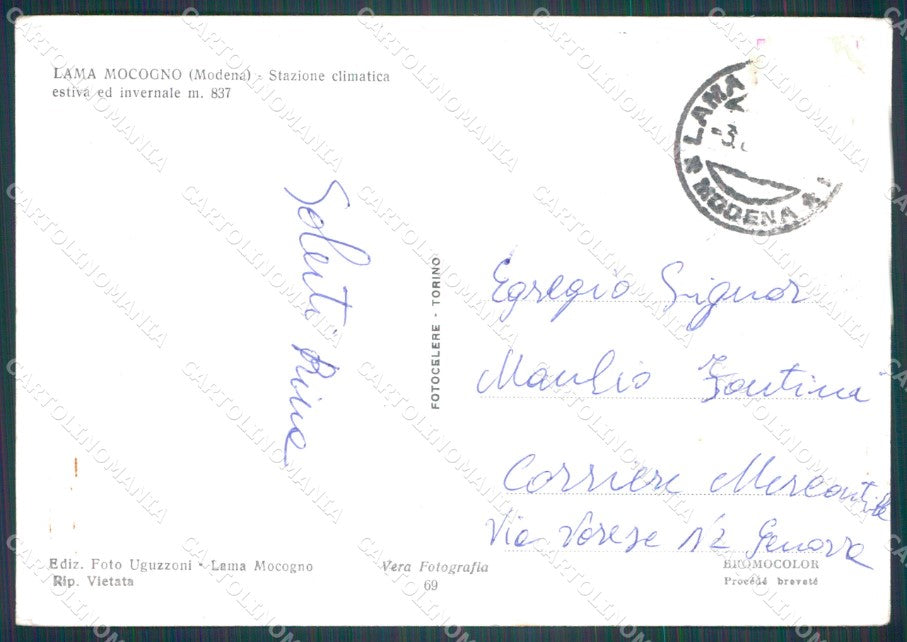 LAMA MOCOGNO (Modena) - Stazione climatica
estiva ed invernale m. 837
LAMA
-3.
MODENA
Soleuti Rina
FOTOCELERE - TORINO
Egregio Signor
Manlio Fantini
Corriere Mercantile
Via Varese n°2 Genova
Ediz. Foto Uguzzoni - Lama Mocogno
Rip. Vietata
Vera Fotografia
69
BROMOCOLOR
Procédé breveté
CARTOLINOMANIA